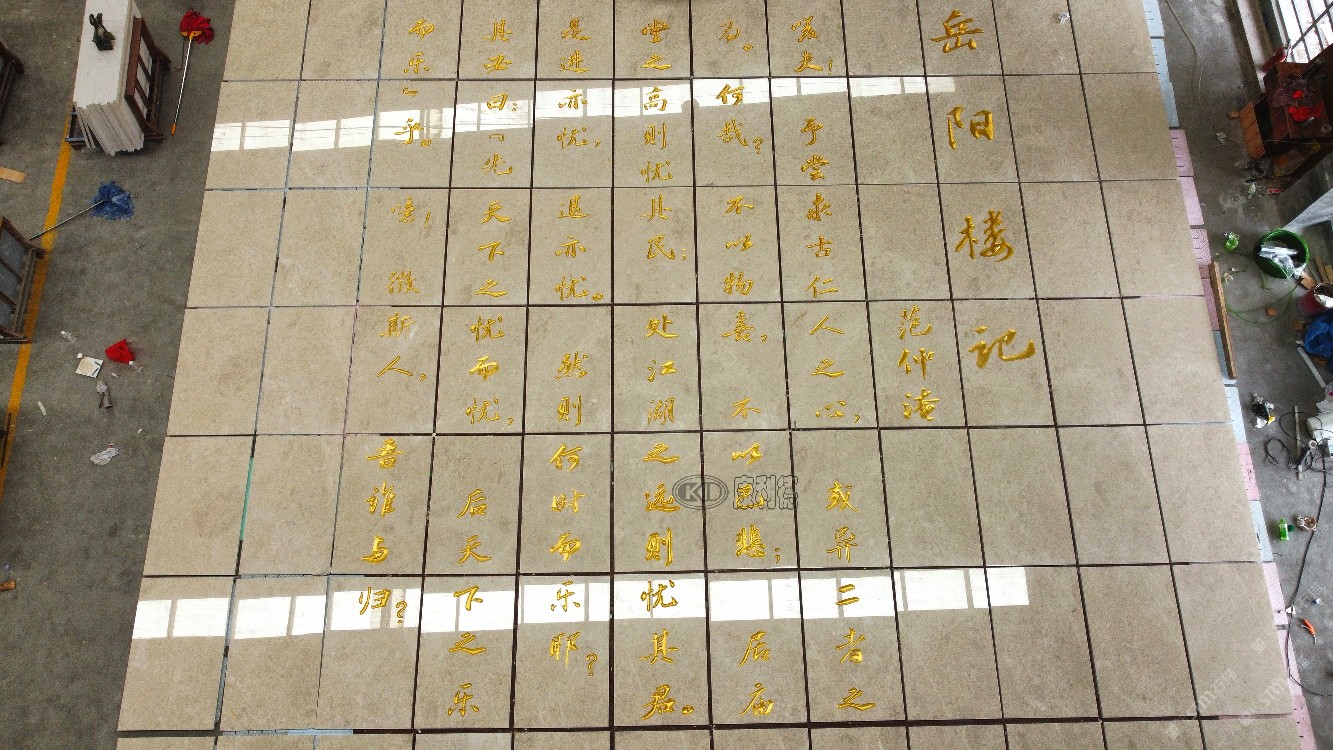 岳阳楼记
范仲淹
嗟夫!予尝求古仁人之心,或异二者之
为。何哉?不以物喜,不以己悲;居庙
堂之高则忧其民;处江湖之远则忧其君。
是进亦忧,退亦忧。然则何时而乐耶?
其必曰:「先天下之忧而忧,后天下之乐
而乐」乎。噫!微斯人,吾谁与归?